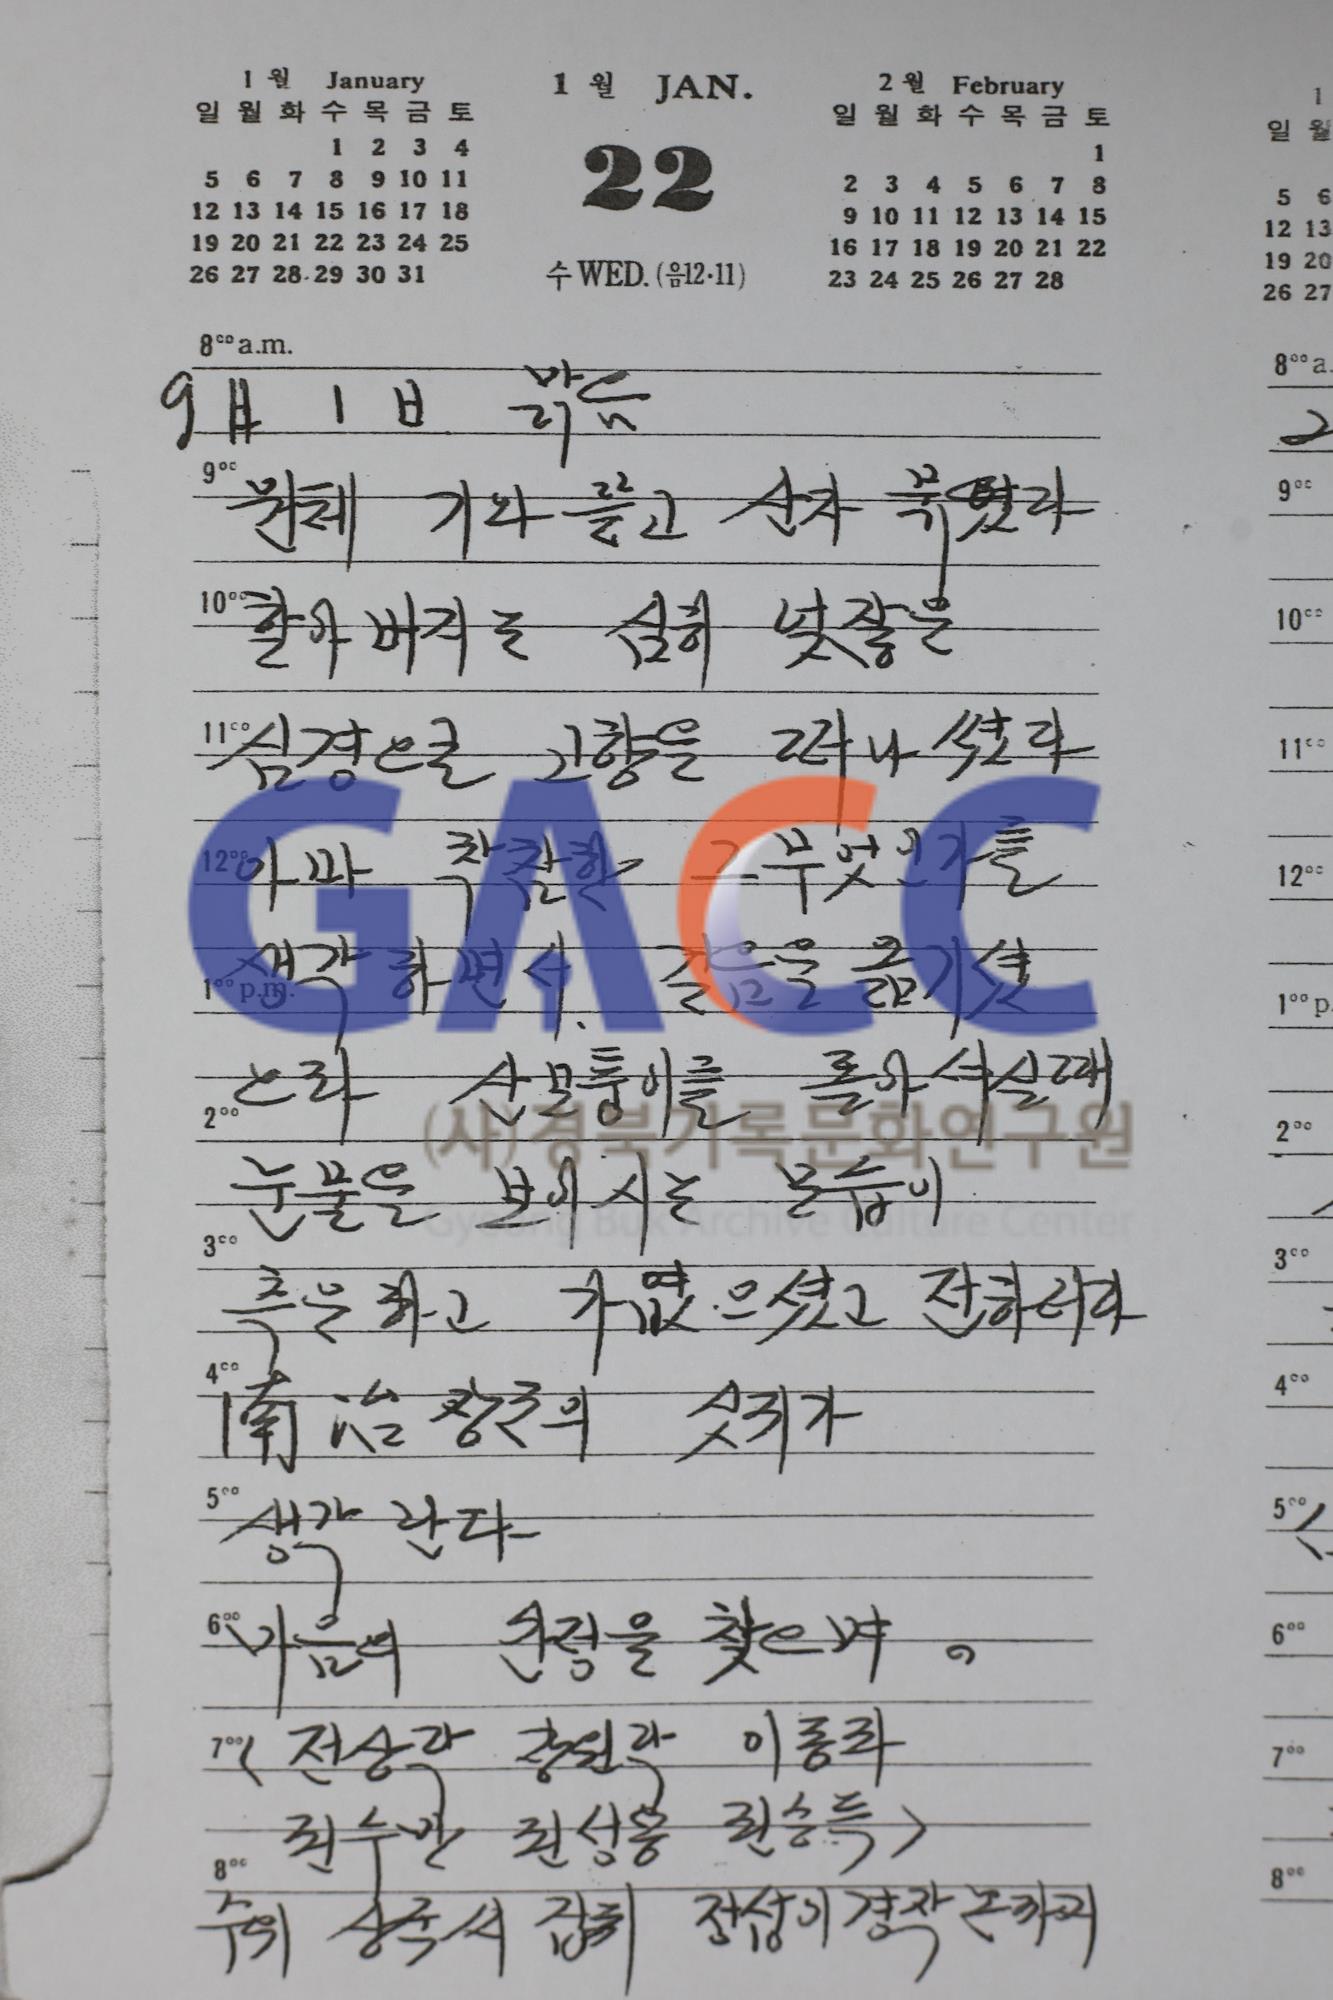 1월 January
일 월 화 수 목 금 토
1 2 3 4
5 6 7 8 9 10 11
12 13 14 15 16 17 18
19 20 21 22 23 24 25
26 27 28 29 30 31
1월 JAN.
22
수 WED. (음12·11)
2월 February
일 월 화 수 목 금 토
1
2 3 4 5 6 7 8
9 10 11 12 13 14 15
16 17 18 19 20 21 22
23 24 25 26 27 28
8⁰⁰ a.m.
9月 1日 맑음
9⁰⁰
기와 를고 산자
10⁰⁰
할아버지는 심히
11⁰⁰
심경으로 고향을 떠나
12⁰⁰
아마 착찹한 그무엇인가를
1⁰⁰ p.m.
생각하면서. 걸음을 옮기셨
으라 산모퉁이를 돌아서실때
2⁰⁰
눈물을 보이시는 모습이
3⁰⁰
측은하고 가엾으셨고 전하더라
4⁰⁰
南治 장군의 싯귀가
5⁰⁰
생각난다
6⁰⁰
마음의 순정을 찾으며。
7⁰⁰
(전상각 창원각 이동화
8⁰⁰
수의 상주서
GACC
(사)경북기록문화연구원
Gyeong Buk Archive Culture Center
1
일 월
5 6
12 13
19 20
26 27
8⁰⁰ a.
9⁰⁰
10⁰⁰
11⁰⁰
12⁰⁰
1⁰⁰ p.
2⁰⁰
3⁰⁰
4⁰⁰
5⁰⁰
6⁰⁰
7⁰⁰
8⁰⁰